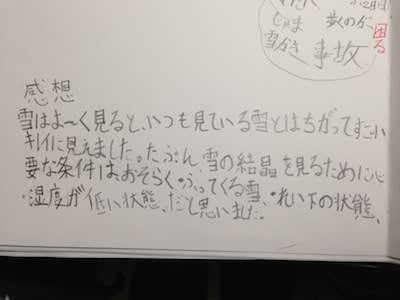 じゃま 歩くのが
困る
雪かき 事故
感想
雪はよーく見ると、いつも見ている雪とはちがってすごい
キレイに見えました。たぶん、雪の結晶を見るために必
要な条件は、おそらく・ふってくる雪、・れい下の状態、
・湿度が低い状態、だと思いました。